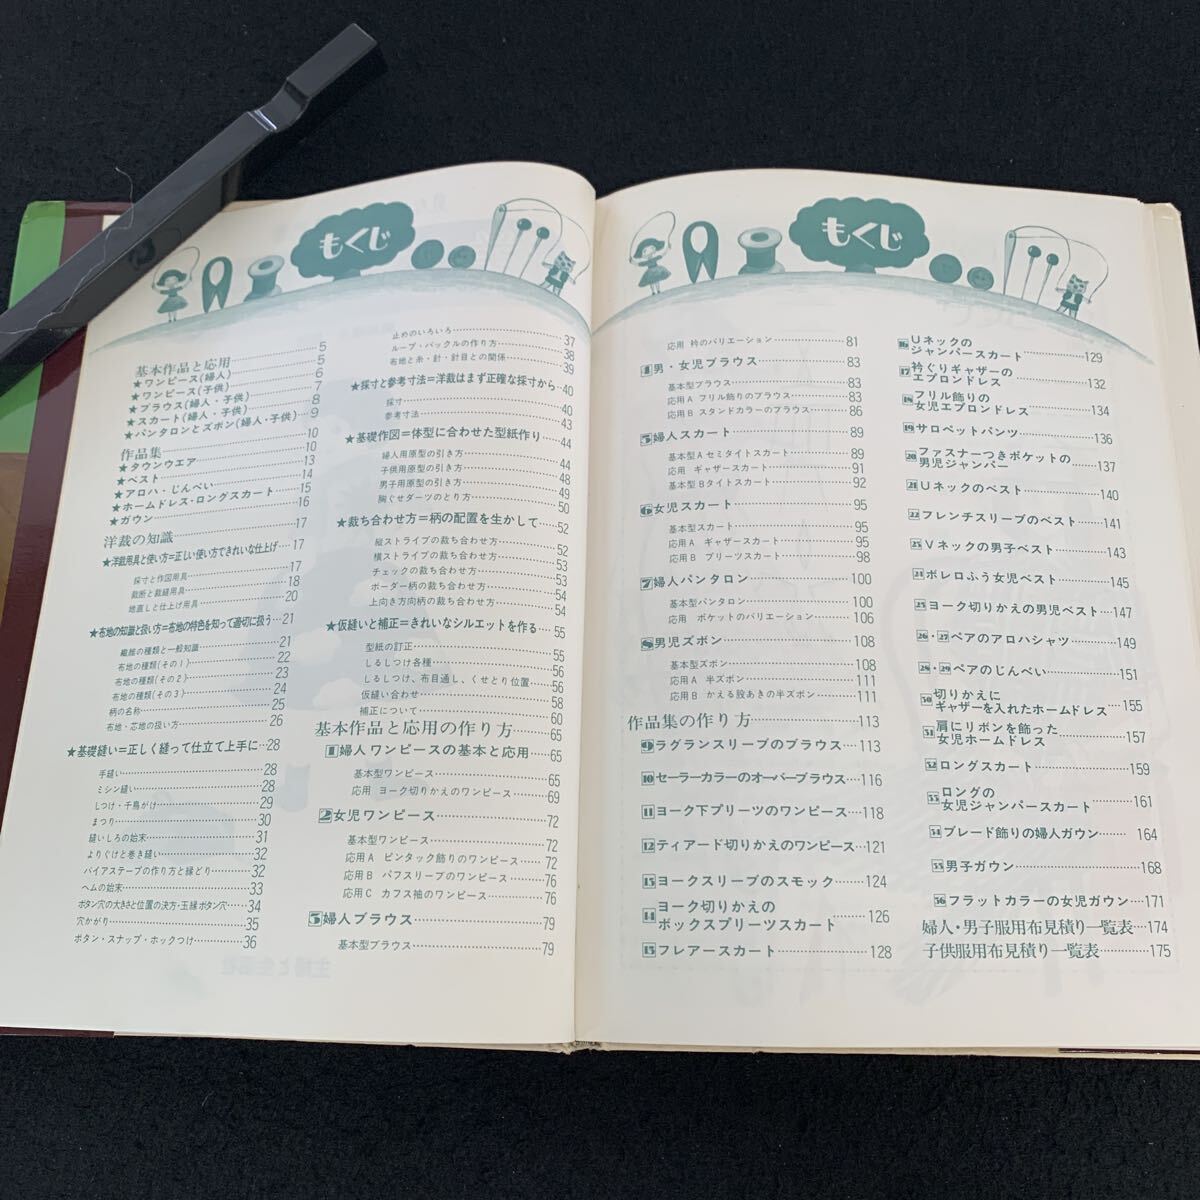 もくじ
基本作品と応用…5
★ワンピース(婦人)…5
★ワンピース(子供)…6
★ブラウス(婦人・子供)…7
★スカート(婦人・子供)…8
★パンタロンとズボン(婦人・子供)…9
作品集…10
★タウンウエア…10
★ベスト…13
★アロハ・じんべい…14
★ホームドレス・ロングスカート…15
★ガウン…16
洋裁の知識…17
★洋裁用具と使い方=正しい使い方できれいな仕上げ…17
採寸と作図用具…17
裁断と裁縫用具…18
地直しと仕上げ用具…20
★布地の知識と扱い方=布地の特色を知って適切に扱う…21
繊維の種類と一般知識…21
布地の種類(その1)…22
布地の種類(その2)…23
布地の種類(その3)…24
柄の名称…25
布地・芯地の扱い方…26
★基礎縫い=正しく縫って仕立て上手に…28
手縫い…28
ミシン縫い…28
しつけ・千鳥がけ…29
まつり…30
縫いしろの始末…31
よりぐけと巻き縫い…32
バイアステープの作り方と縁どり…32
ヘムの始末…33
ボタン穴の大きさと位置の決め方・玉縁ボタン穴…34
穴かがり…35
ボタン・スナップ・ホックつけ…36
止めのいろいろ…37
ループ・バックルの作り方…38
布地と糸・針・針目との関係…39
★採寸と参考寸法=洋裁はまず正確な採寸から…40
採寸…40
参考寸法…43
★基礎作図=体型に合わせた型紙作り…44
婦人用原型の引き方…44
子供用原型の引き方…48
男子用原型の引き方…49
胸ぐせダーツのとり方…50
★裁ち合わせ方=柄の配置を生かして…52
縦ストライプの裁ち合わせ方…52
横ストライプの裁ち合わせ方…53
チェックの裁ち合わせ方…53
ボーダー柄の裁ち合わせ方…54
上向き方向柄の裁ち合わせ方…54
★仮縫いと補正=きれいなシルエットを作る…55
型紙の訂正…55
しるしつけ各種…56
しるしつけ、布目通し、くせとり位置…56
仮縫い合わせ…58
補正について…60
基本作品と応用の作り方…65
1婦人ワンピースの基本と応用…65
基本型ワンピース…65
応用 ヨーク切りかえのワンピース…69
2女児ワンピース…72
基本型ワンピース…72
応用A ピンタック飾りのワンピース…72
応用B パフスリーブのワンピース…76
応用C カフス袖のワンピース…76
3婦人ブラウス…79
基本型ブラウス…79
もくじ
応用 衿のバリエーション…81
4男・女児ブラウス…83
基本型ブラウス…83
応用A フリル飾りのブラウス…83
応用B スタンドカラーのブラウス…86
5婦人スカート…89
基本型Aセミタイトスカート…89
応用 ギャザースカート…91
基本型Bタイトスカート…92
6女児スカート…95
基本型スカート…95
応用A ギャザースカート…95
応用B プリーツスカート…98
7婦人パンタロン…100
基本型パンタロン…100
応用 ポケットのバリエーション…106
8男児ズボン…108
基本型ズボン…108
応用A 半ズボン…111
応用B かえる股あきの半ズボン…111
作品集の作り方…113
9ラグランスリーブのブラウス…113
10セーラーカラーのオーバーブラウス…116
11ヨーク下プリーツのワンピース…118
12ティアード切りかえのワンピース…121
13ヨークスリーブのスモック…124
14ヨーク切りかえの
ボックスプリーツスカート…126
15フレアースカート…128
16Uネックの
ジャンパースカート…129
17衿ぐりギャザーの
エプロンドレス…132
18フリル飾りの
女児エプロンドレス…134
19サロペットパンツ…136
20ファスナーつきポケットの
男児ジャンパー…137
21Uネックのベスト…140
22フレンチスリーブのベスト…141
23Vネックの男子ベスト…143
24ボレロふう女児ベスト…145
25ヨーク切りかえの男児ベスト…147
26・27ペアのアロハシャツ…149
28・29ペアのじんべい…151
30切りかえに
ギャザーを入れたホームドレス…155
31肩にリボンを飾った
女児ホームドレス…157
32ロングスカート…159
33ロングの
女児ジャンパースカート…161
34ブレード飾りの婦人ガウン…164
35男子ガウン…168
36フラットカラーの女児ガウン…171
婦人・男子服用布見積り一覧表…174
子供服用布見積り一覧表…175